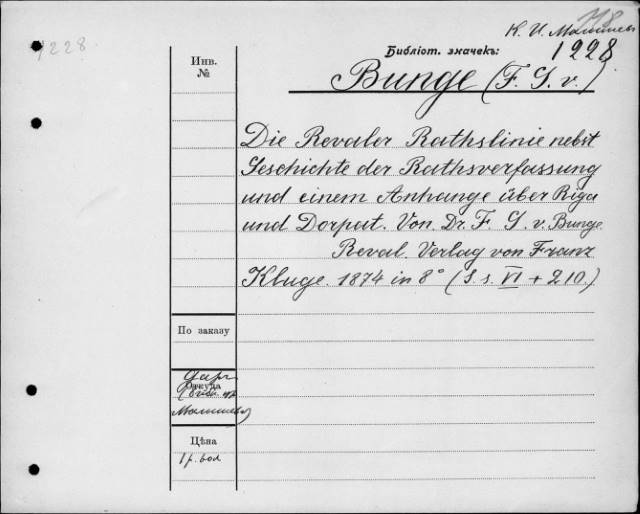 1228
78
К. И. Малышев
Библіот. значекъ: 1228
Инв.
№
Bunge (F. G. v.)
Die Revaler Rathslinie nebst
Geschichte der Rathsverfassung
und einem Anhange über Riga
und Dorpat. Von Dr. F. G. v. Bunge.
Reval. Verlag von Franz
Kluge. 1874 in 8° (S. s. VI + 210.)
По заказу
Даръ
Откуда
Малышева
Цѣна
1 р.